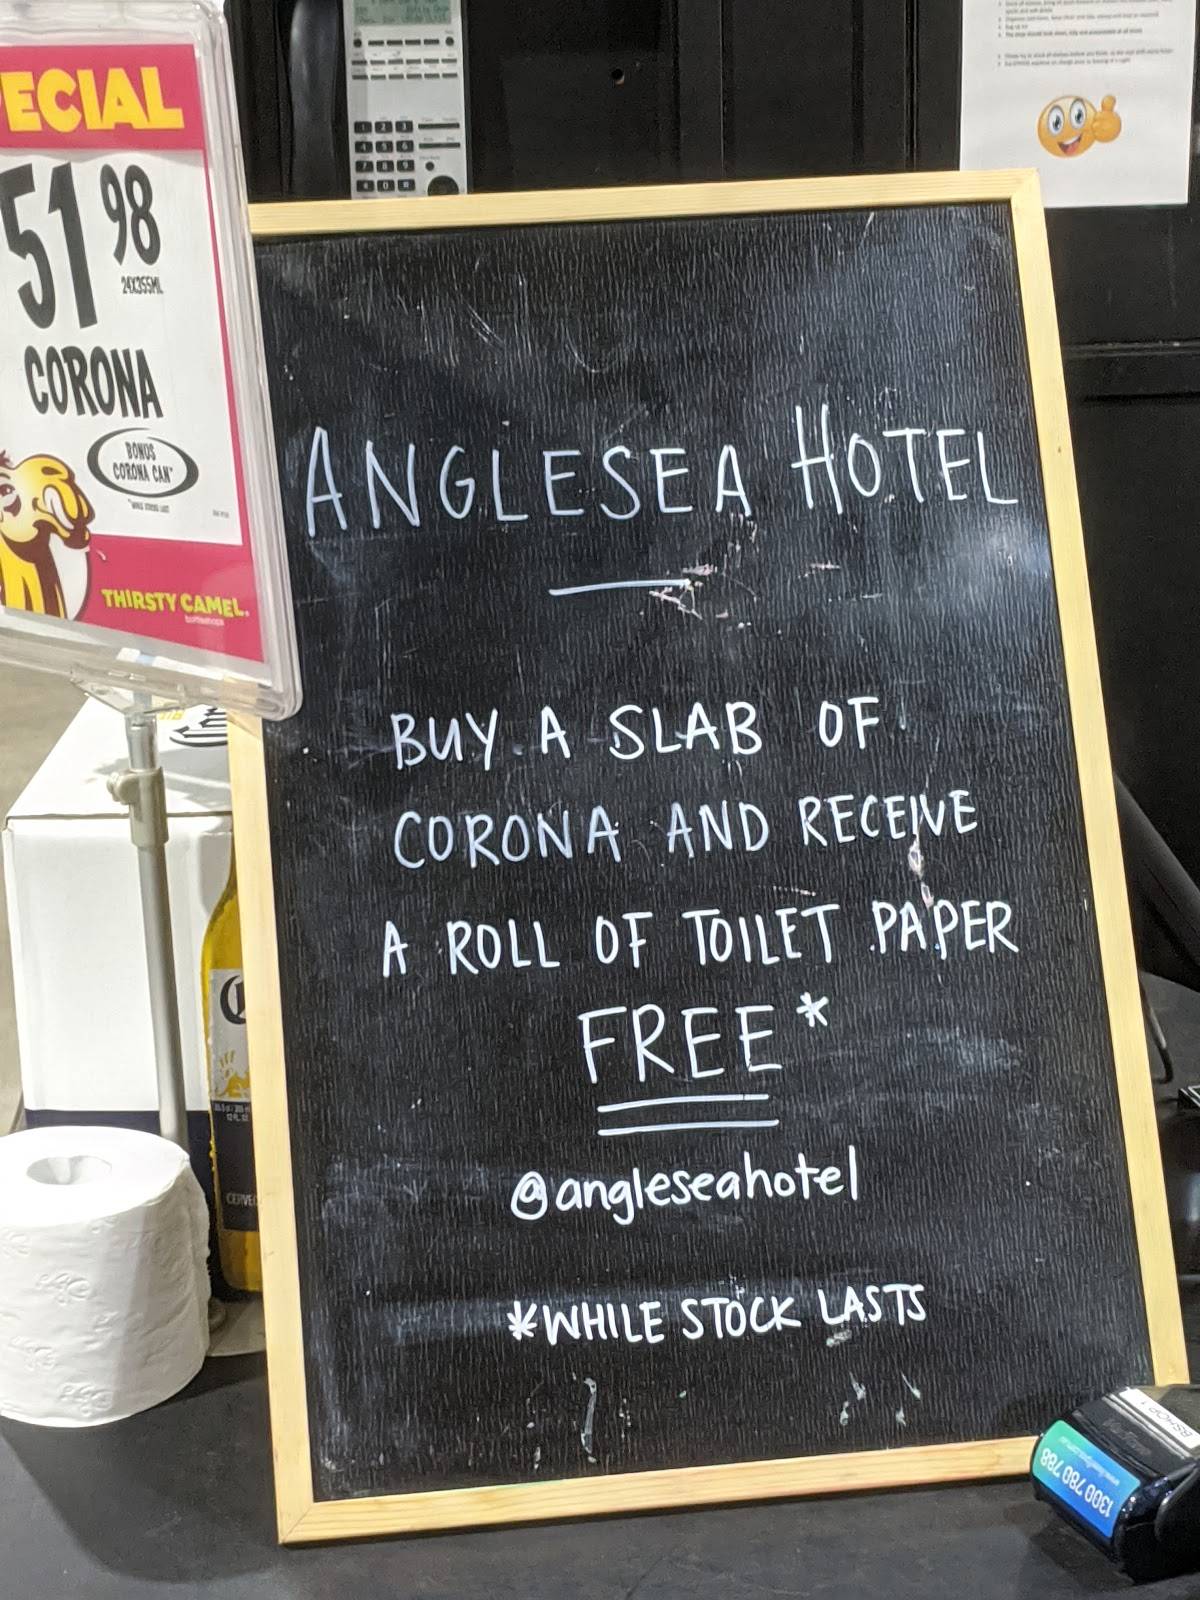 ECIAL
51 98
24X355ML
CORONA
BONUS
CORONA CAN*
*WHILE STOCKS LAST
THIRSTY CAMEL.
bottleshops
ANGLESEA HOTEL
BUY A SLAB OF
CORONA AND RECEIVE
A ROLL OF TOILET PAPER
FREE*
@angleseahotel
*WHILE STOCK LASTS
CERVE
BSHOP 1
1300 780 788